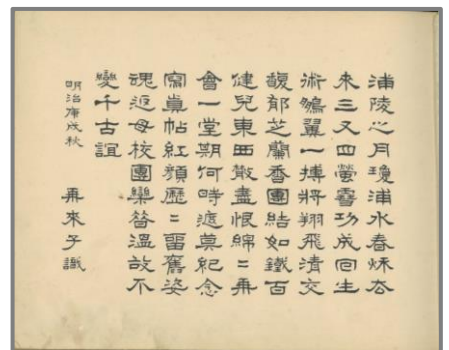 浦陵之月瓊浦水春秋去
来三又四螢雪功成回生
術鵬翼一搏將翔飛清交
馥郁芝蘭香團結如鐵百
健兒東西散盡恨綿〻再
會一堂期何時遮莫紀念
寫真帖紅顏歷〻留舊姿
魂返母校團欒替温故不
變千古誼
明治庚戌秋 再来子識